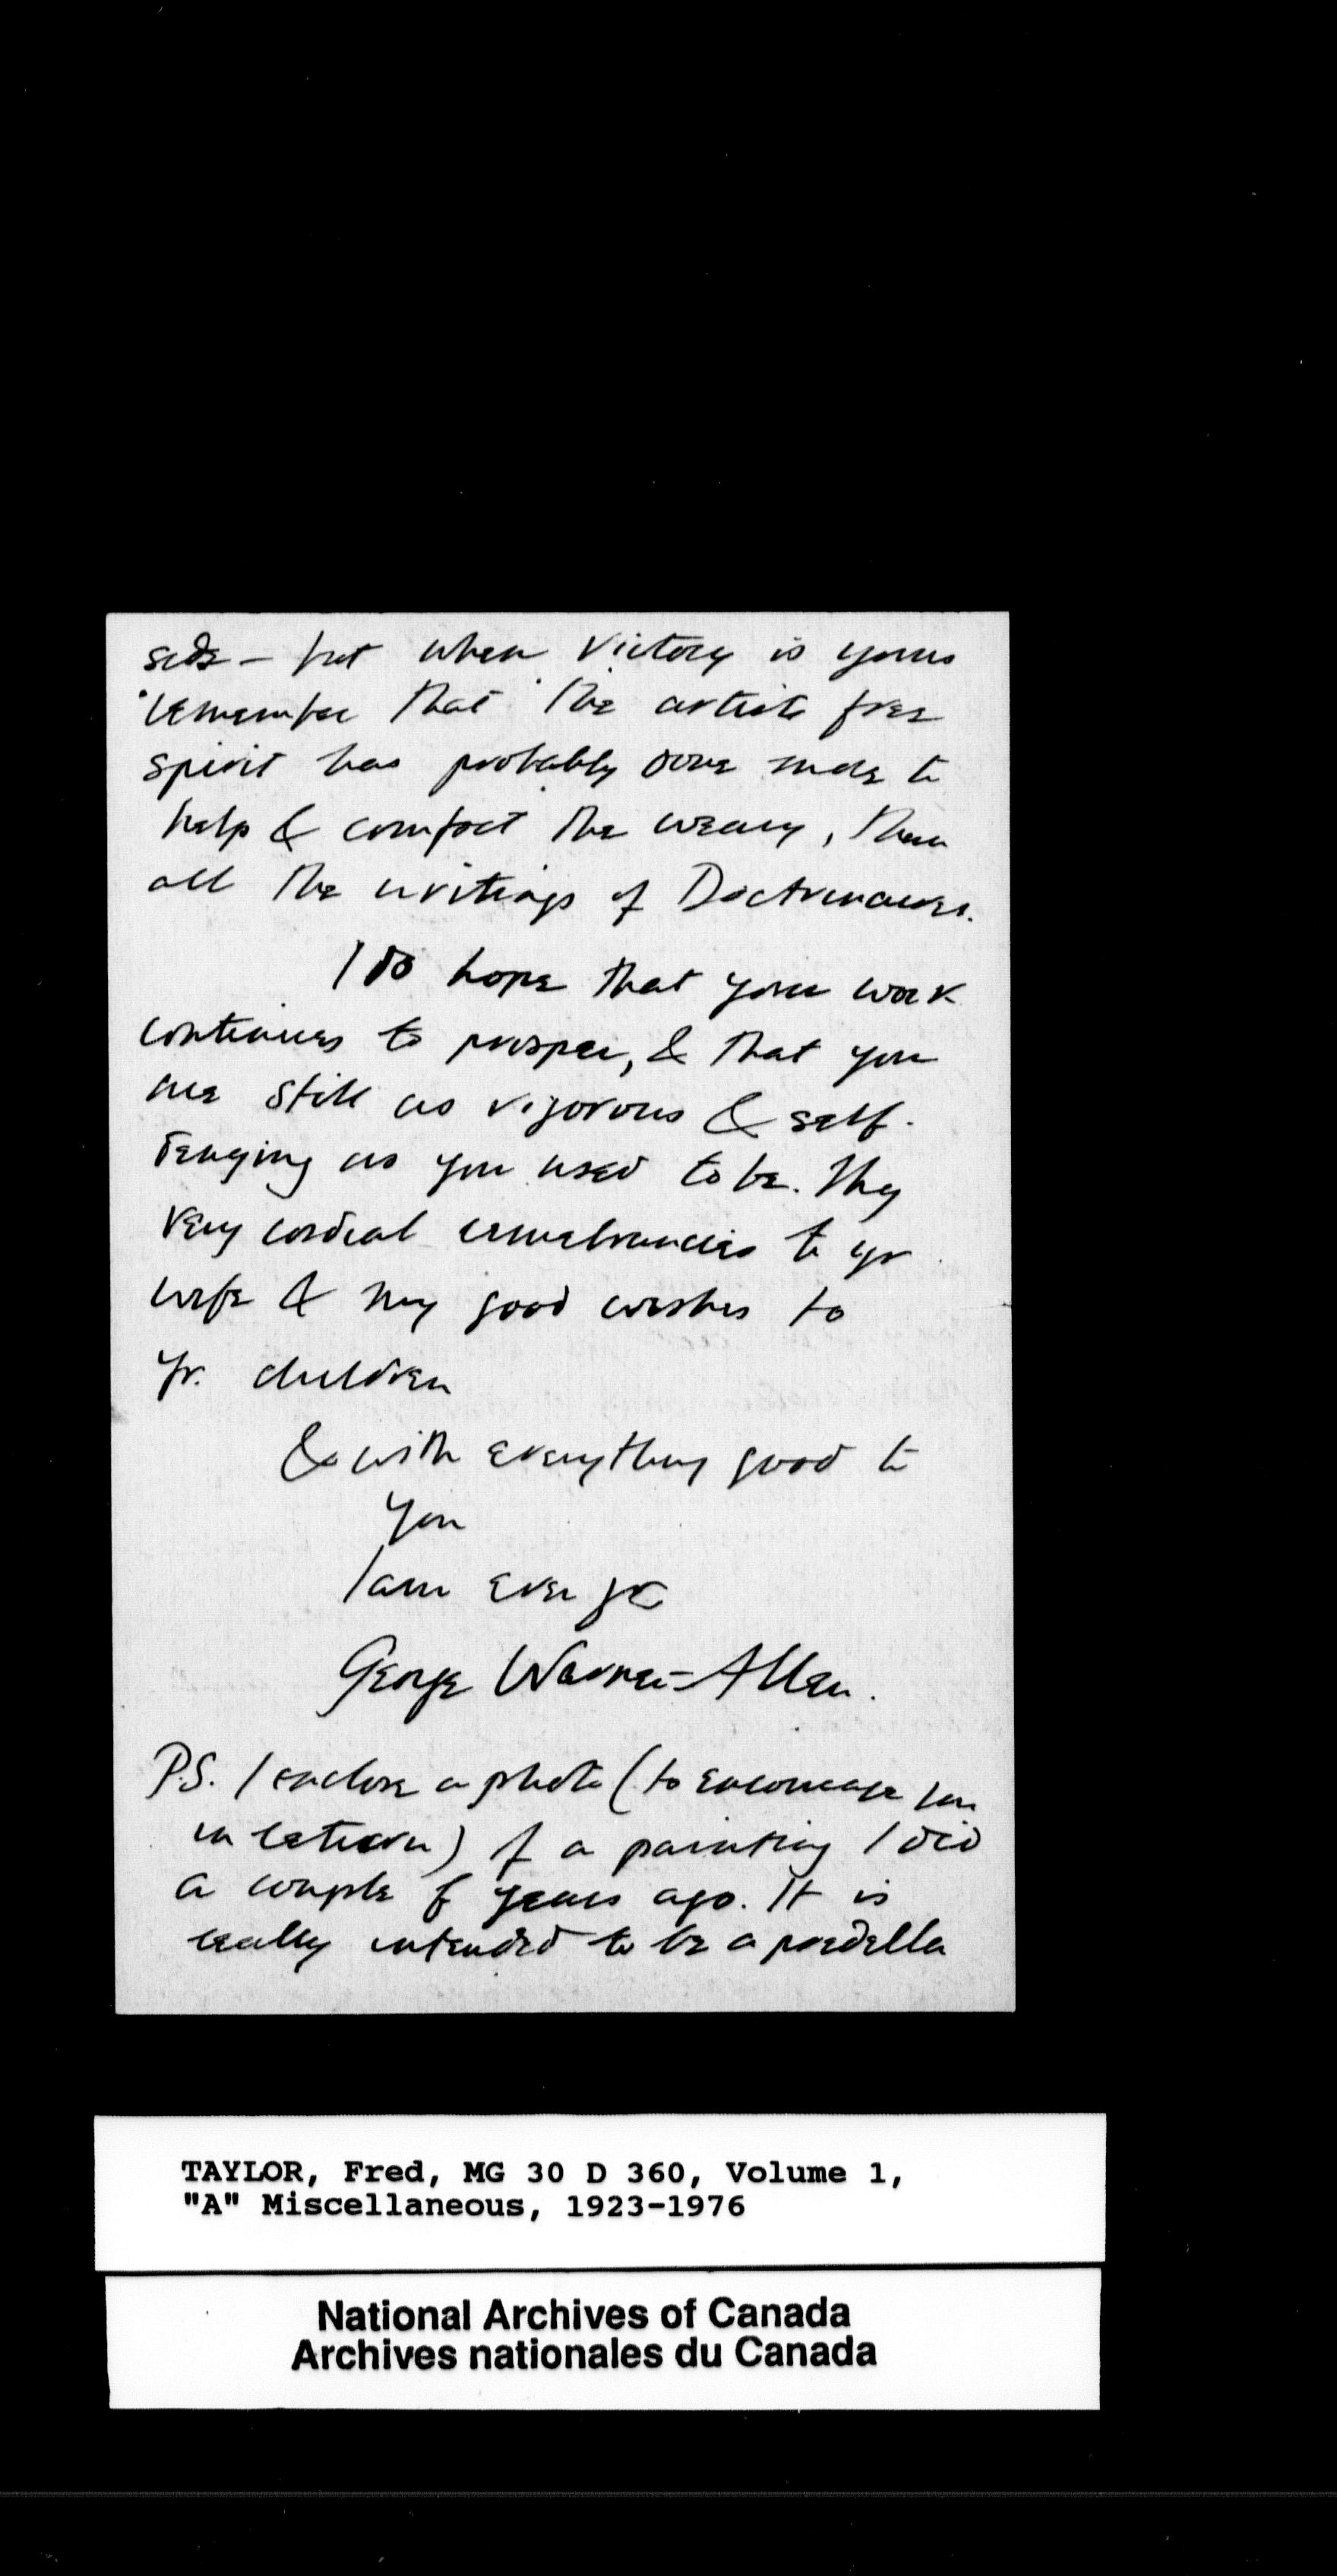 side – but when Victory is yours
remember that the artists free
spirit has probably done more to
help & comfort the weary, than
all the writings of Doctrinaires.
I do hope that your work
continues to prosper, & that you
are still as vigorous & self-
denying as you used to be. My
very cordial remembrances to yr
wife & my good wishes to
yr. children
& with everything good to
you
I am ever yrs
George Warner-Allen.
P.S. I enclose a photo (to encourage you
in return) of a painting I did
a couple of years ago. It is
really intended to be a predella
TAYLOR, Fred, MG 30 D 360, Volume 1,
"A" Miscellaneous, 1923-1976
National Archives of Canada
Archives nationales du Canada